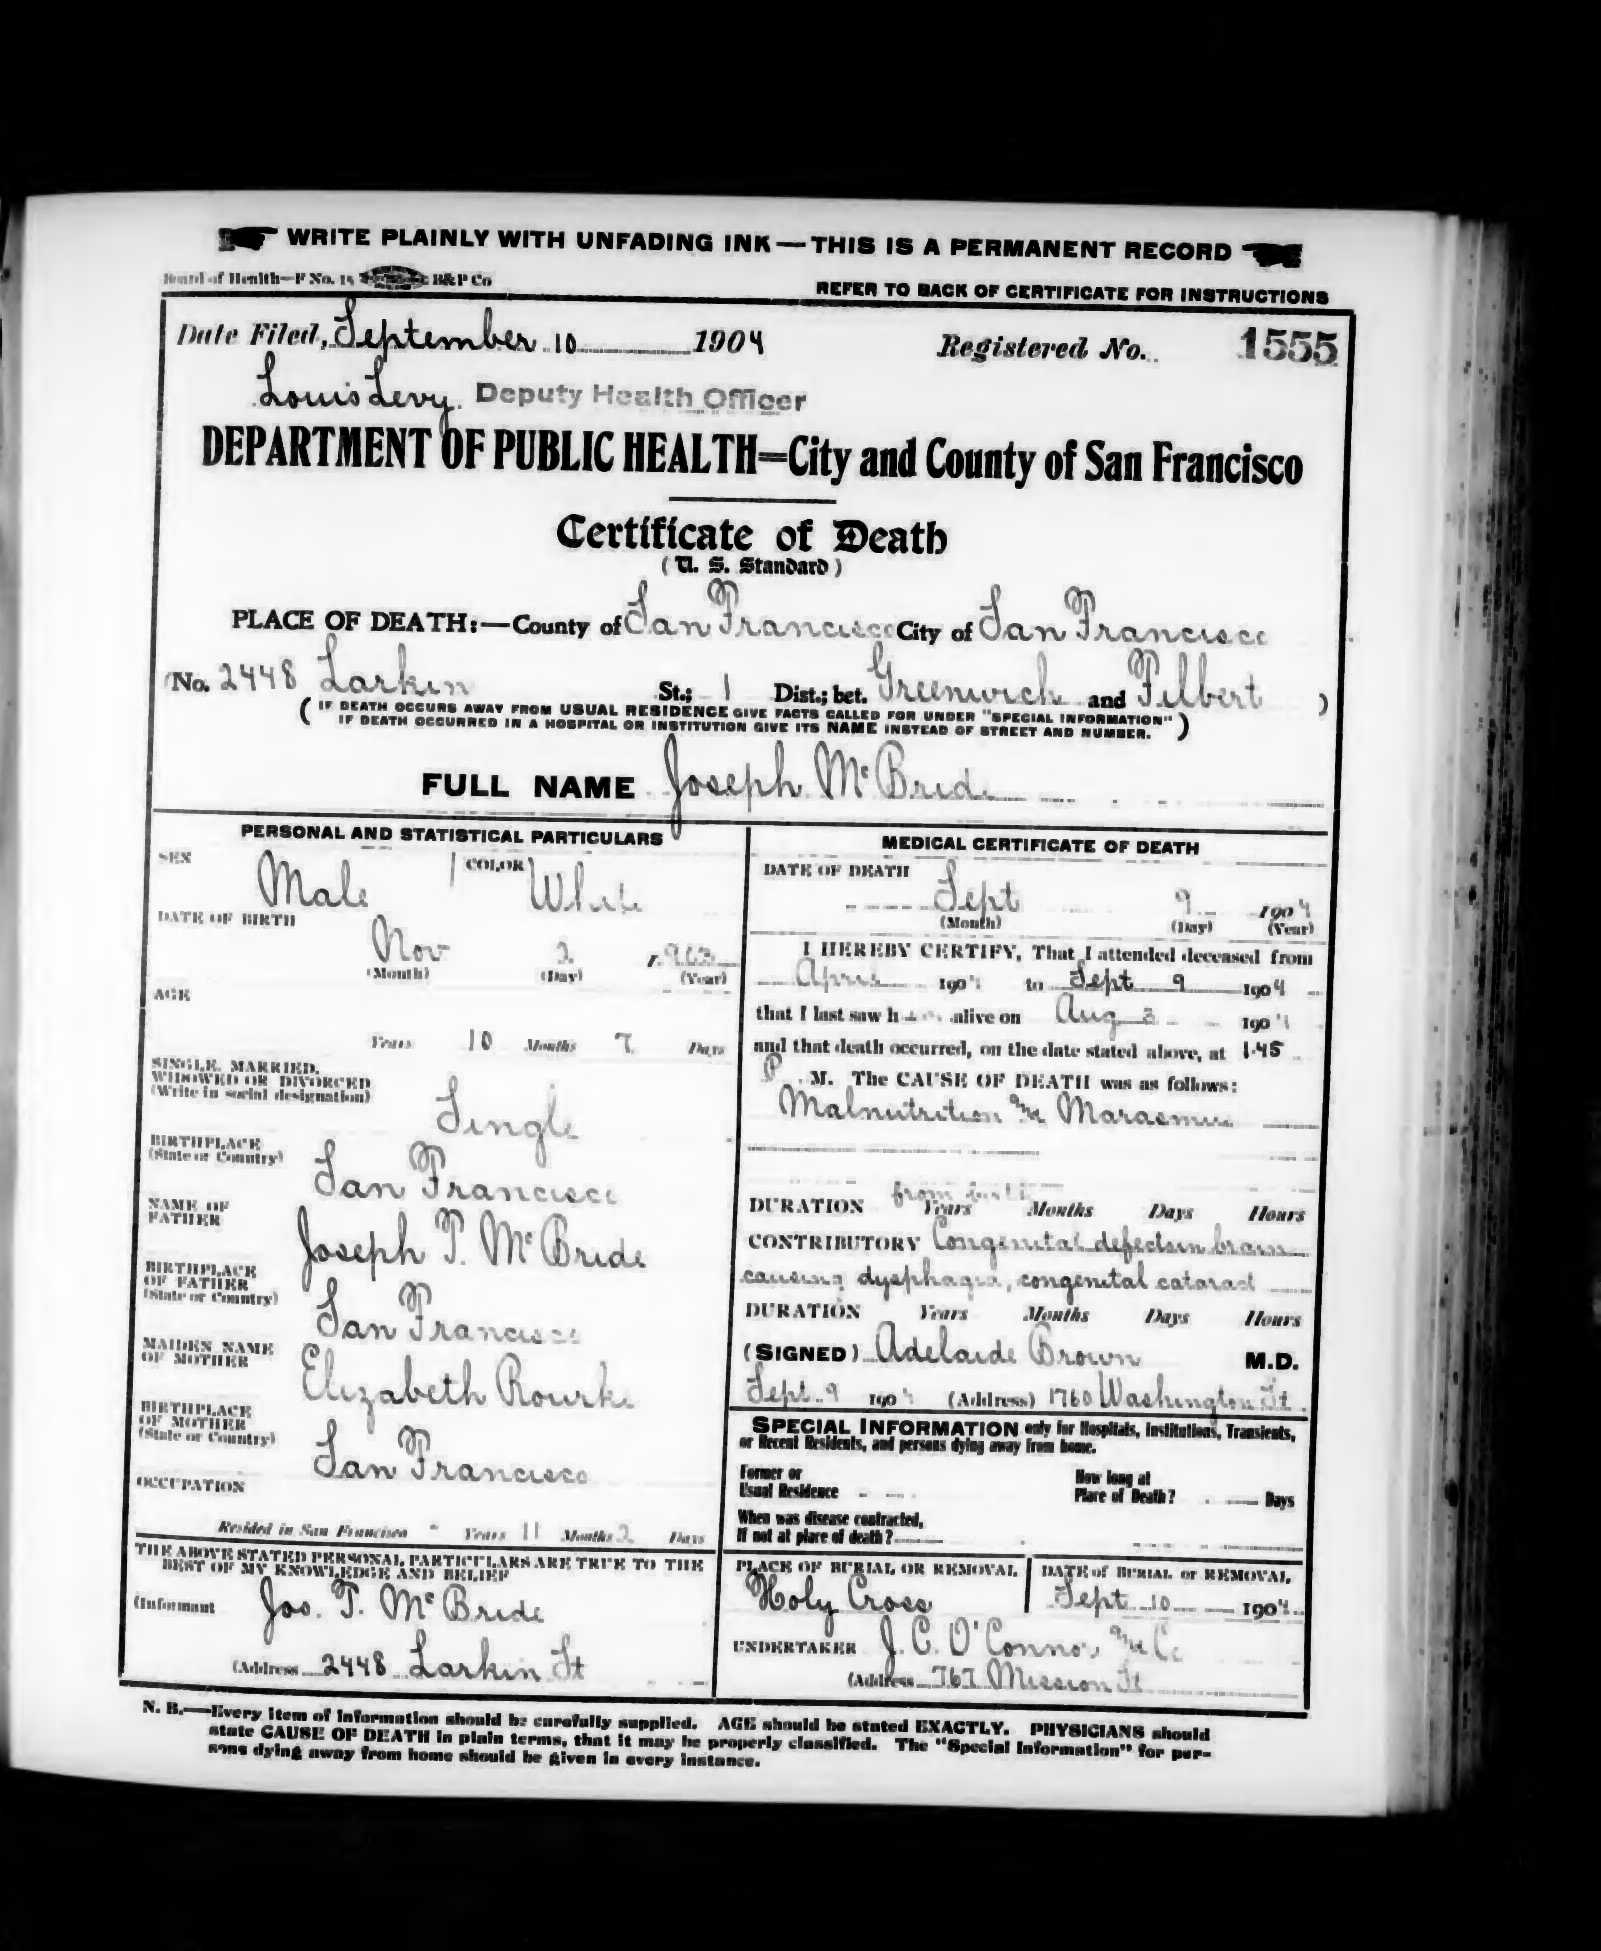 WRITE PLAINLY WITH UNFADING INK — THIS IS A PERMANENT RECORD
Board of Health—F No. 15 B&P Co
REFER TO BACK OF CERTIFICATE FOR INSTRUCTIONS
Date Filed, September 10 1904 Registered No. 1555
Louis Levy. Deputy Health Officer
DEPARTMENT OF PUBLIC HEALTH=City and County of San Francisco
Certificate of Death
(U. S. Standard)
PLACE OF DEATH:—County of San Francisco City of San Francisco
(No. 2448 Larkin St.; 1 Dist.; bet. Greenwich and Filbert )
( IF DEATH OCCURS AWAY FROM USUAL RESIDENCE GIVE FACTS CALLED FOR UNDER "SPECIAL INFORMATION"
IF DEATH OCCURRED IN A HOSPITAL OR INSTITUTION GIVE ITS NAME INSTEAD OF STREET AND NUMBER. )
FULL NAME Joseph McBride
PERSONAL AND STATISTICAL PARTICULARS
SEX Male COLOR White
DATE OF BIRTH
Nov 2 1903
(Month) (Day) (Year)
AGE
Years 10 Months 7 Days
SINGLE, MARRIED,
WIDOWED OR DIVORCED
(Write in social designation) Single
BIRTHPLACE
(State or Country) San Francisco
NAME OF
FATHER Joseph T. McBride
BIRTHPLACE
OF FATHER
(State or Country) San Francisco
MAIDEN NAME
OF MOTHER Elizabeth Rourke
BIRTHPLACE
OF MOTHER
(State or Country) San Francisco
OCCUPATION
Resided in San Francisco - Years 11 Months 2 Days
THE ABOVE STATED PERSONAL PARTICULARS ARE TRUE TO THE
BEST OF MY KNOWLEDGE AND BELIEF
(Informant Jos. T. McBride
(Address 2448 Larkin St
MEDICAL CERTIFICATE OF DEATH
DATE OF DEATH
Sept 9 1904
(Month) (Day) (Year)
I HEREBY CERTIFY, That I attended deceased from
April 1904 to Sept 9 1904
that I last saw h alive on Aug 3 1904
and that death occurred, on the date stated above, at 1.45
P M. The CAUSE OF DEATH was as follows:
Malnutrition and Marasmus
from birth
DURATION Years Months Days Hours
CONTRIBUTORY Congenital defects in brain
causing dysphagia, congenital cataract
DURATION Years Months Days Hours
(SIGNED) Adelaide Brown M.D.
Sept 9 1904 (Address) 1760 Washington St.
SPECIAL INFORMATION only for Hospitals, Institutions, Transients,
or Recent Residents, and persons dying away from home.
Former or
Usual Residence
How long at
Place of Death? Days
When was disease contracted,
If not at place of death?
PLACE OF BURIAL OR REMOVAL
Holy Cross
DATE of BURIAL or REMOVAL
Sept 10 1904
UNDERTAKER J. C. O'Connor and Co
(Address 767 Mission St
N. B.—Every item of information should be carefully supplied. AGE should be stated EXACTLY. PHYSICIANS should
state CAUSE OF DEATH in plain terms, that it may be properly classified. The "Special Information" for per-
sons dying away from home should be given in every instance.